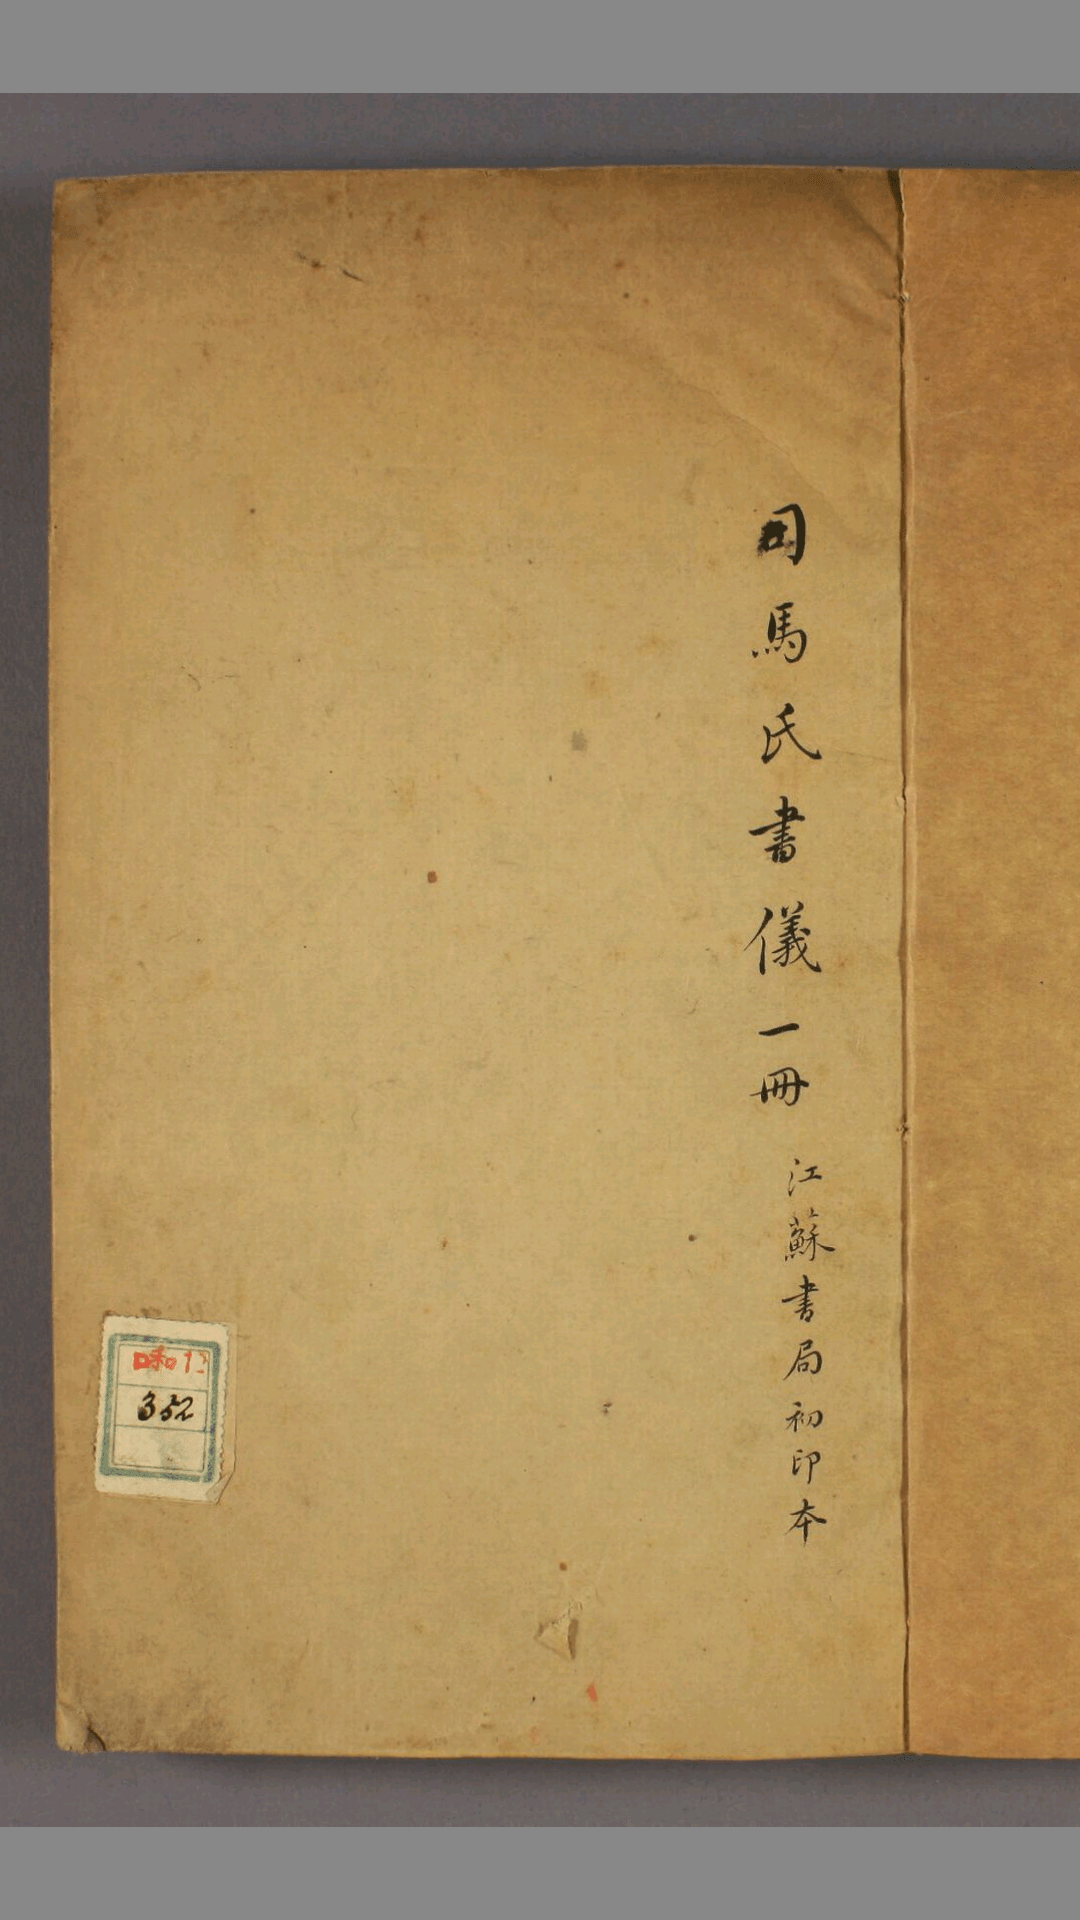 司馬氏書儀一冊
江蘇書局初印本
昭和12
352